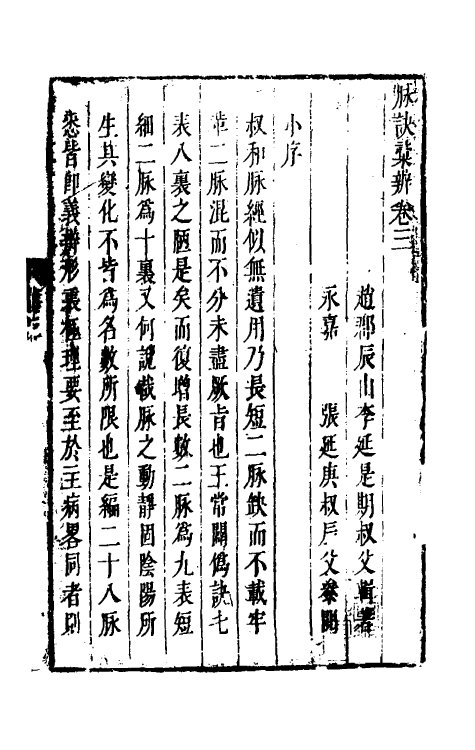 脉訣彚辨卷三
趙郡辰山李延是期叔父輯著
永嘉　張延庚叔辰父參閱
小序
叔和脉經似無遺用乃長短二脉缺而不載牢
革二脉混而不分未盡厥旨也王常闢僞訣七
表八裏之陋是矣而復增長數二脉爲九表短
細二脉爲十裏又何說哉脉之動靜固陰陽所
生其變化不皆爲名數所限也是編二十八脉
悉皆卽義辨形衷極理要至於主病畧同者則